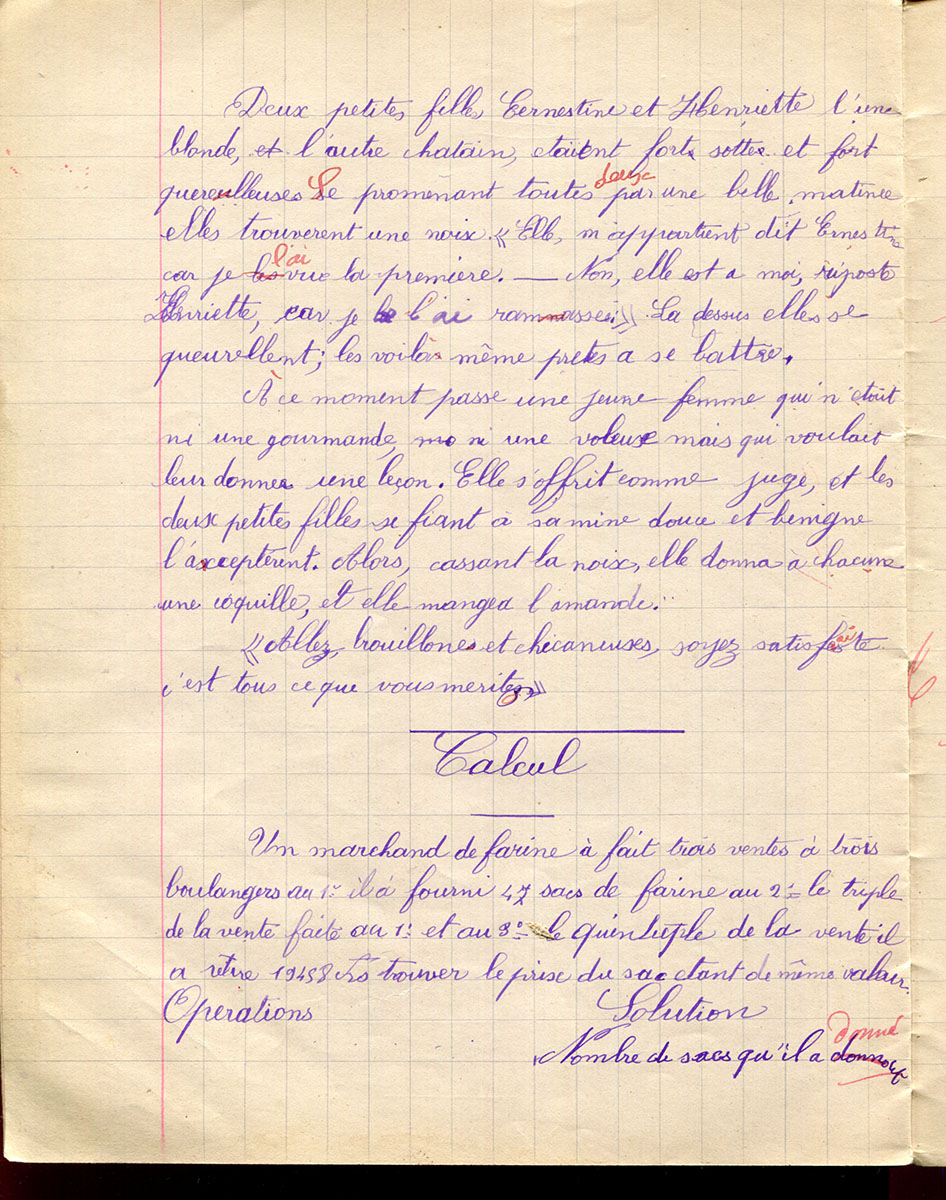 Deux petites filles Eernestine et Henriette l'une
blonde, et l'autre chatain, etaient forts sottes et fort
quereulleuses Se promenant toutes deux par une belle matinee
elles trouverent une noix. « Elle, m'appartient dit Ernestine
car je l'ai vue la première. — Non, elle est a moi, riposte
Henriette, car je l'ai rammassée. » La dessus elles se
queurellent ; les voilà même pretes a se battre.
À ce moment passe une jeune femme qui n'etait
ni une gourmande, ni une voleuse mais qui voulait
leur donner une leçon. Elle s'offrit comme juge, et les
deux petites filles se fiant à sa mine douce et benigne
l'axceptèrent. Alors, cassant la noix, elle donna à chacune
une coquille, et elle mangea l'amande.
« Allez, brouillones et chicaneuses, soyez satisfaite
c'est tous ce que vous meritez »
Calcul
Un marchand de farine à fait trois ventes à trois
boulangers au 1er il à fourni 47 sacs de farine au 2e le triple
de la vente faite au 1er et au 3e le quintuple de la vente il
a retire 19458 trouver le prise du sac etant de même valeur.
Operations Solution
Nombre de sacs qu'il a donné